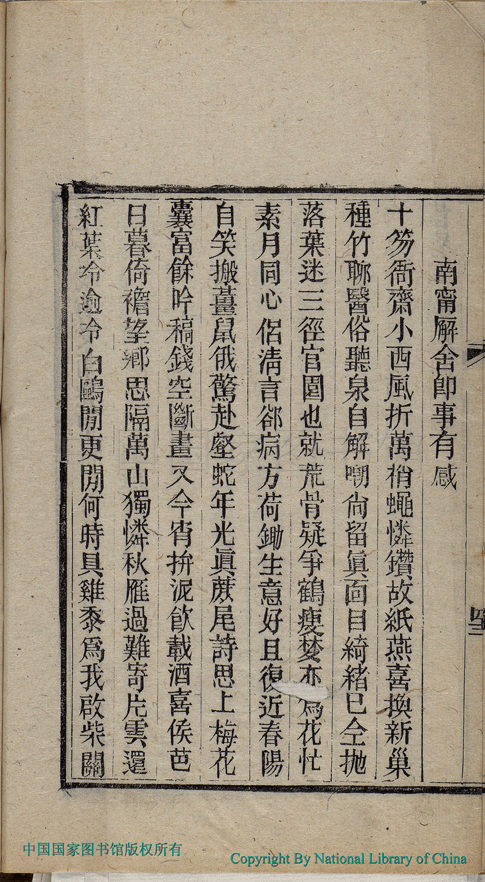 南甯廨舍即事有感
十笏衙齋小西風折萬梢蠅憐鑽故紙燕喜換新巢
種竹聊醫俗聽泉自解嘲尚留眞面目綺緒已仝拋
落葉迷三徑官園也就荒骨疑爭鶴瘦夢亦爲花忙
素月同心侶清言郤病方荷鋤生意好且復近春陽
自笑搬薑鼠俄驚赴壑蛇年光眞蔗尾詩思上梅花
囊富餘吟稿錢空斷畫叉今宵拚泥飲載酒喜侯芭
日暮倚襜望鄉思隔萬山獨憐秋雁過難寄片雲還
紅葉冷逾冷白鷗閒更閒何時具雞黍爲我啟柴關
中国国家图书馆版权所有
Copyright By National Library of China